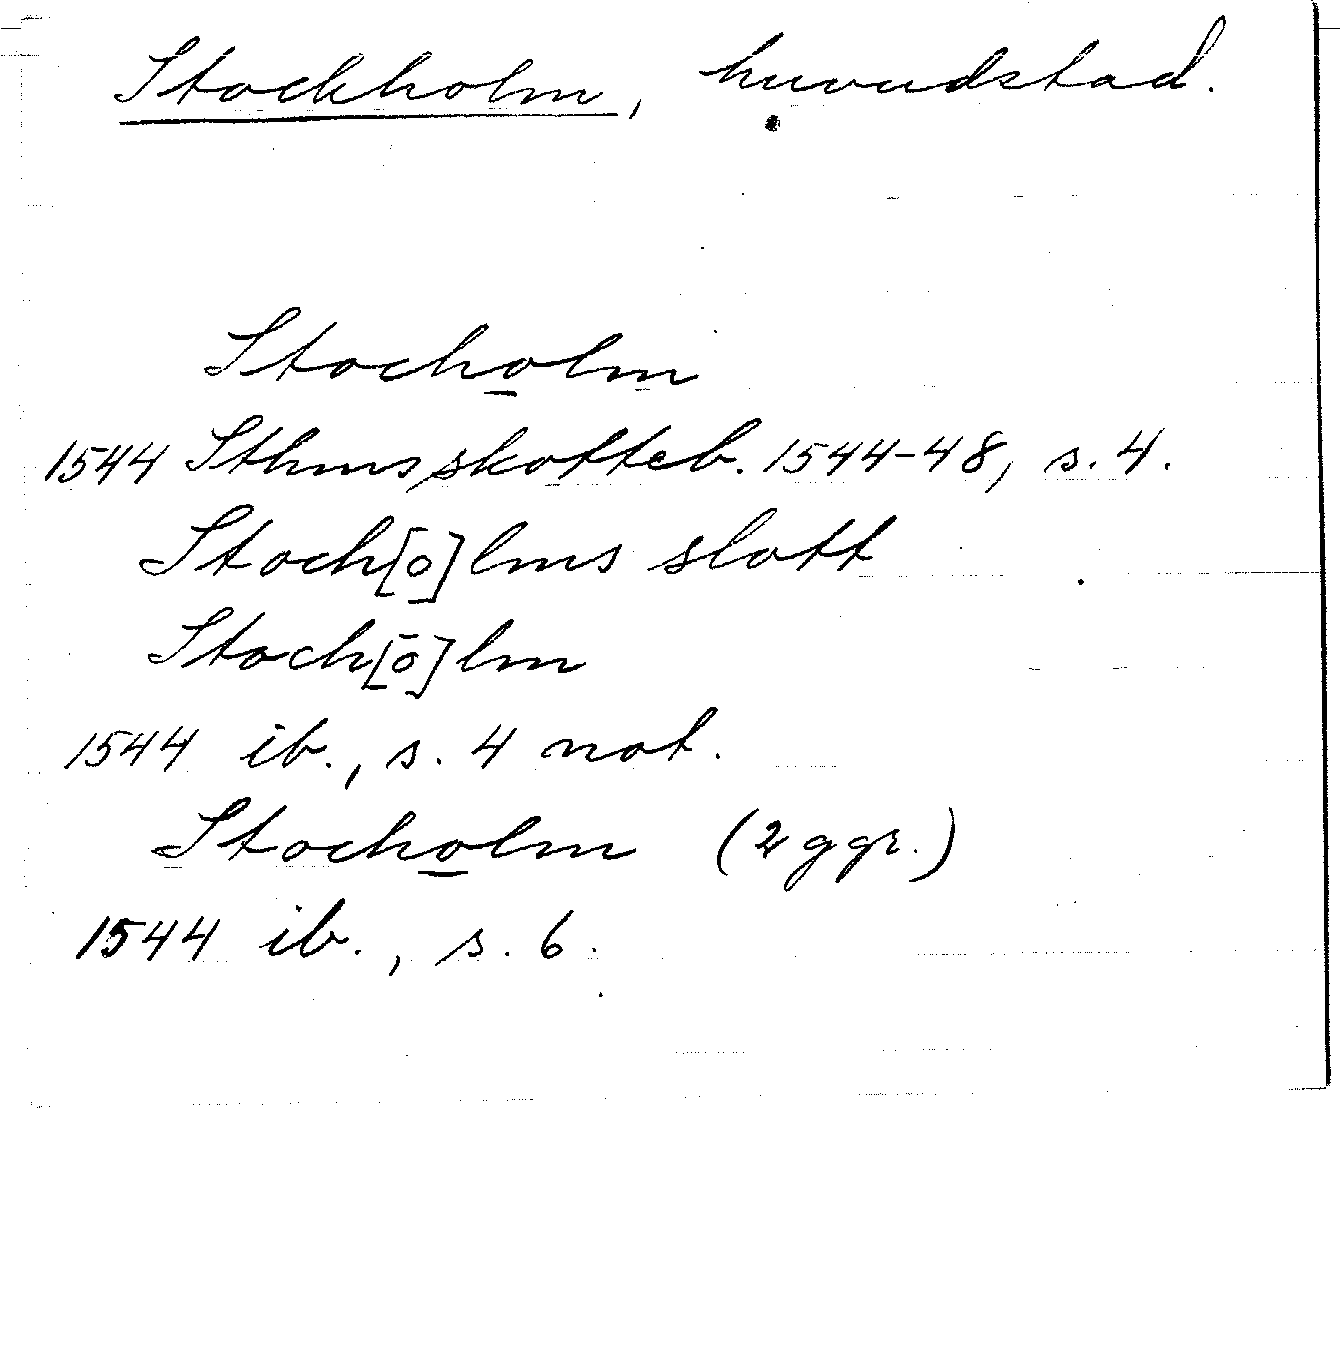 Stockholm, huvudstad.
Stocholm
1544 Sthms skotteb. 1544-48, s. 4.
Stoch[o]lms slott
Stoch[o]lm
1544 ib., s. 4 not.
Stocholm (2 ggr.)
1544 ib., s. 6.